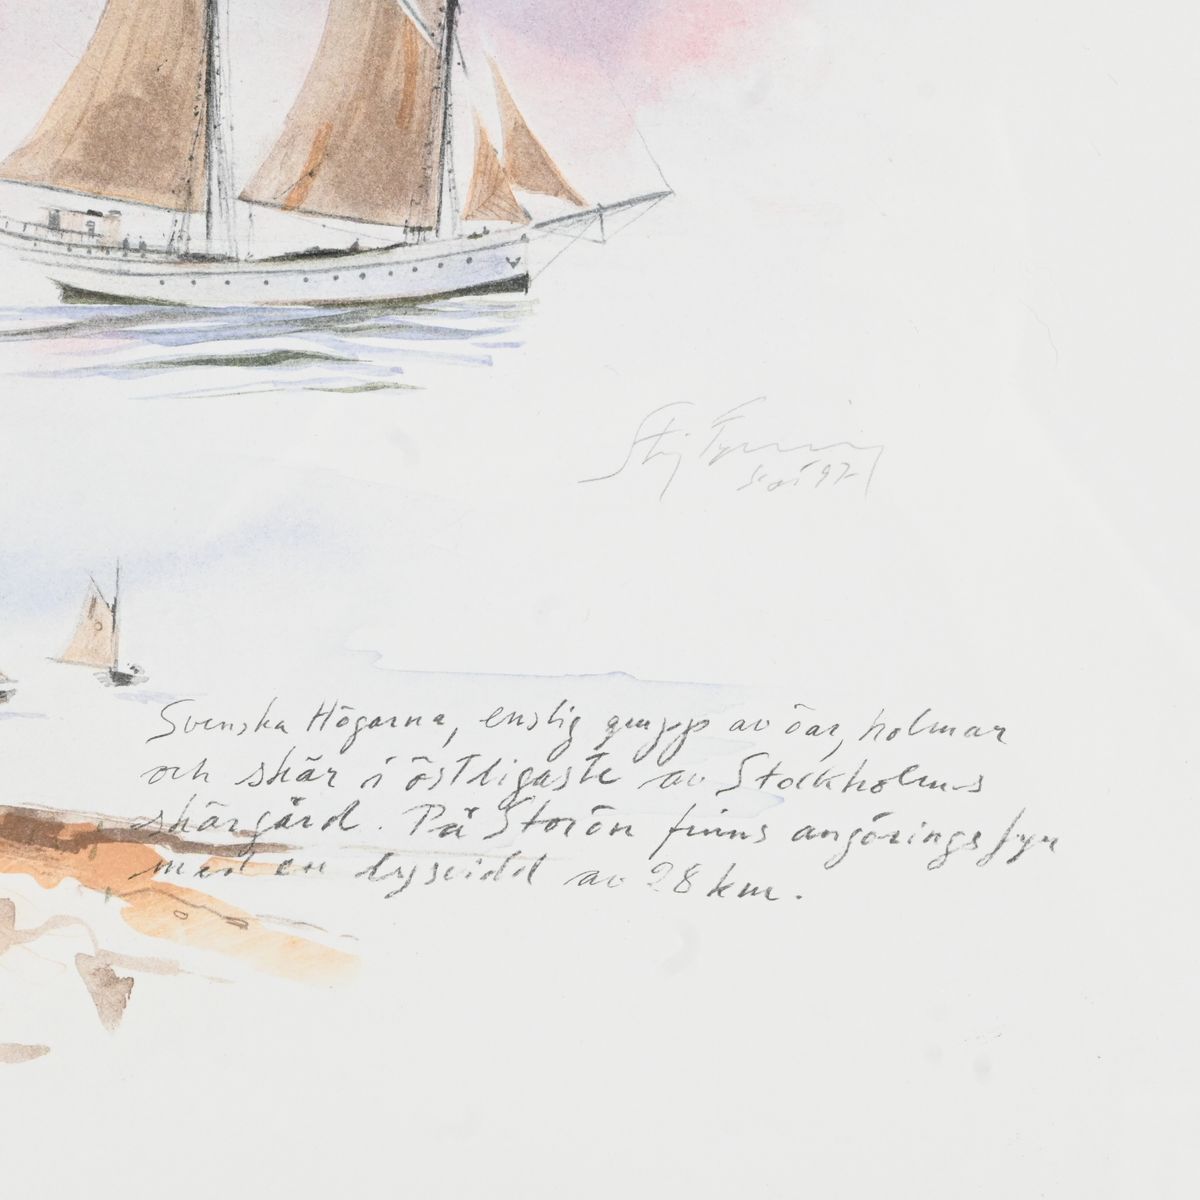 Stig
97
Svenska Högarna, enslig grupp av öar, holmar
och skär i östligaste av Stockholms
skärgård. På Storön finns angöringsfyr
med en lysvidd av 28 km.